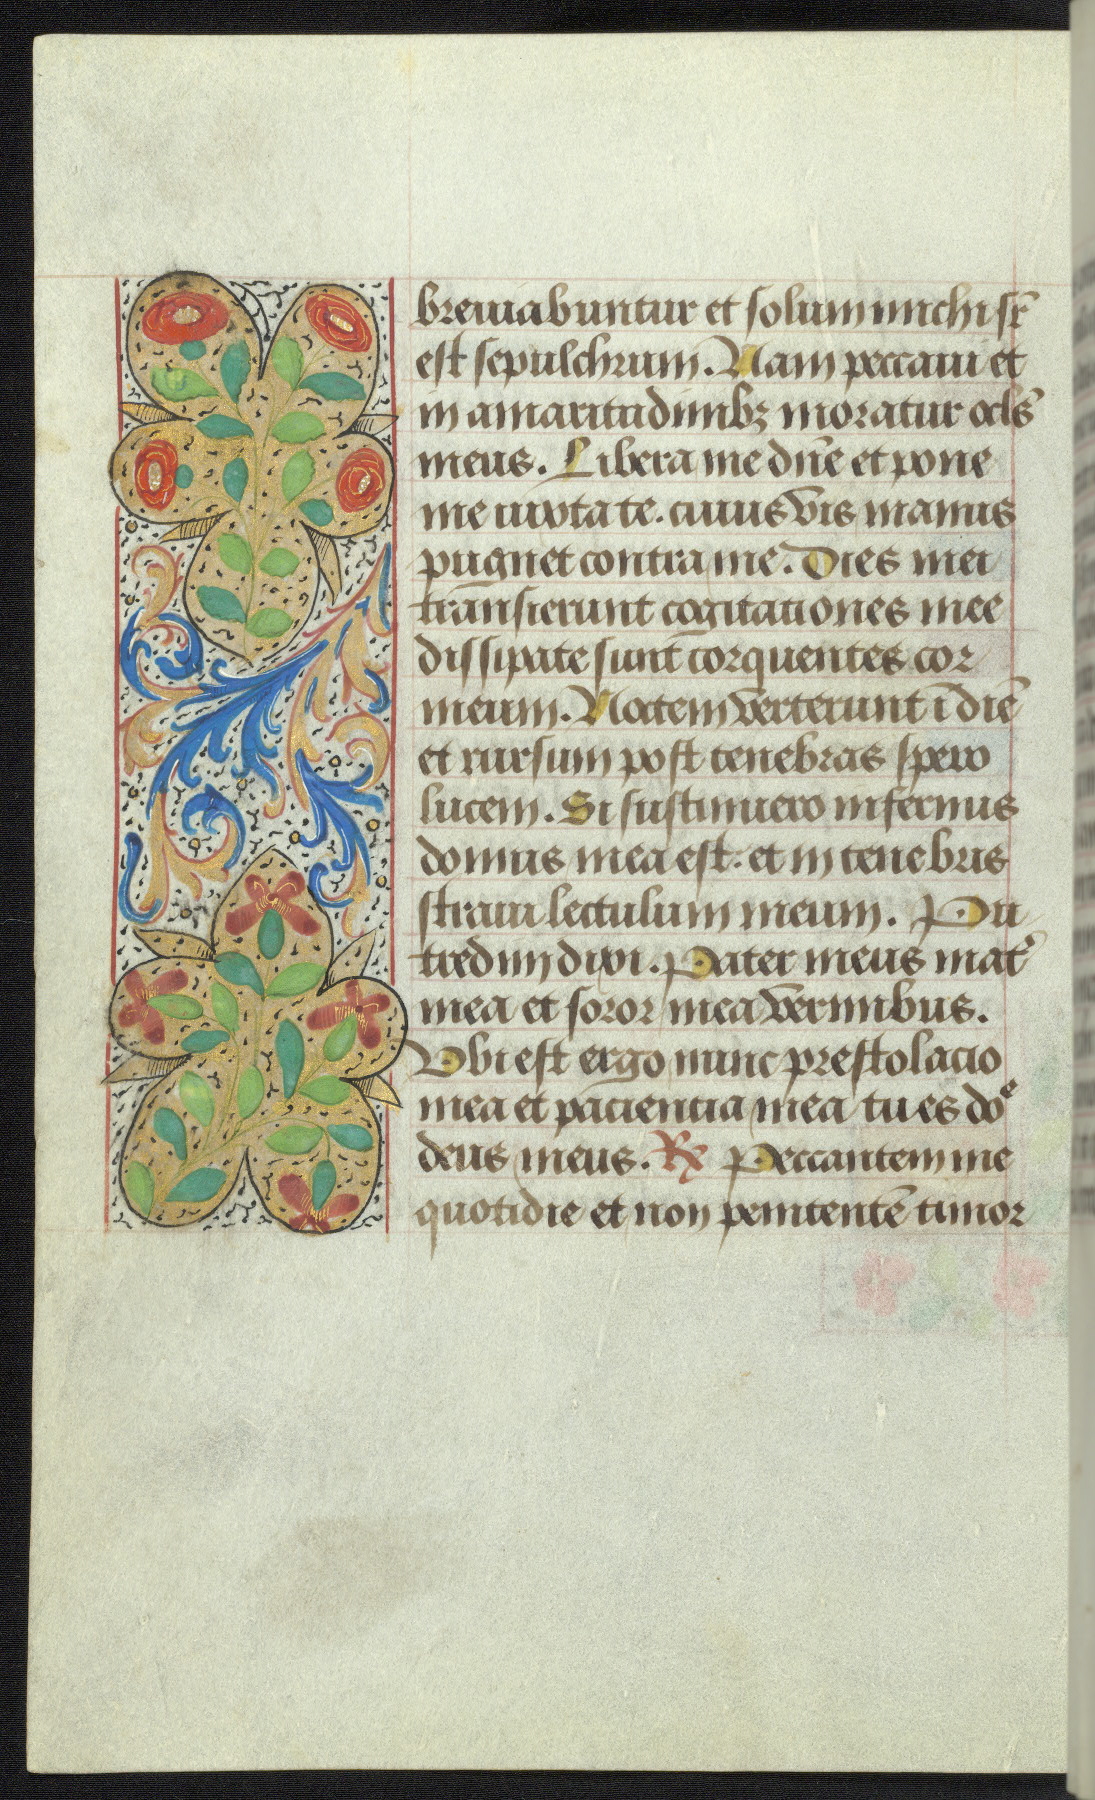 breuiabuntur et solum michi sr̄
est sepulchrum. Nam peccaui et
in amaritudinibꝫ moratur ocls̄
meus. Libera me dn̄e et pone
me iuxta te. cuius vis manus
pugnet contra me. Dies mei
transierunt cogitationes mee
dissipate sunt torquentes cor
meum. Noctem verterunt ī diē
et rursum post tenebras spero
lucem. Si sustinuero infernus
domus mea est. et in tenebris
straui lectulum meum. Pu
tredini dixi. Pater meus mat᷑
mea et soror mea vermibus.
Vbi est ergo nunc prestolacio
mea et paciencia mea tu es dōe
deus meus. Rx Peccantem me
quotidie et non penitentē timor